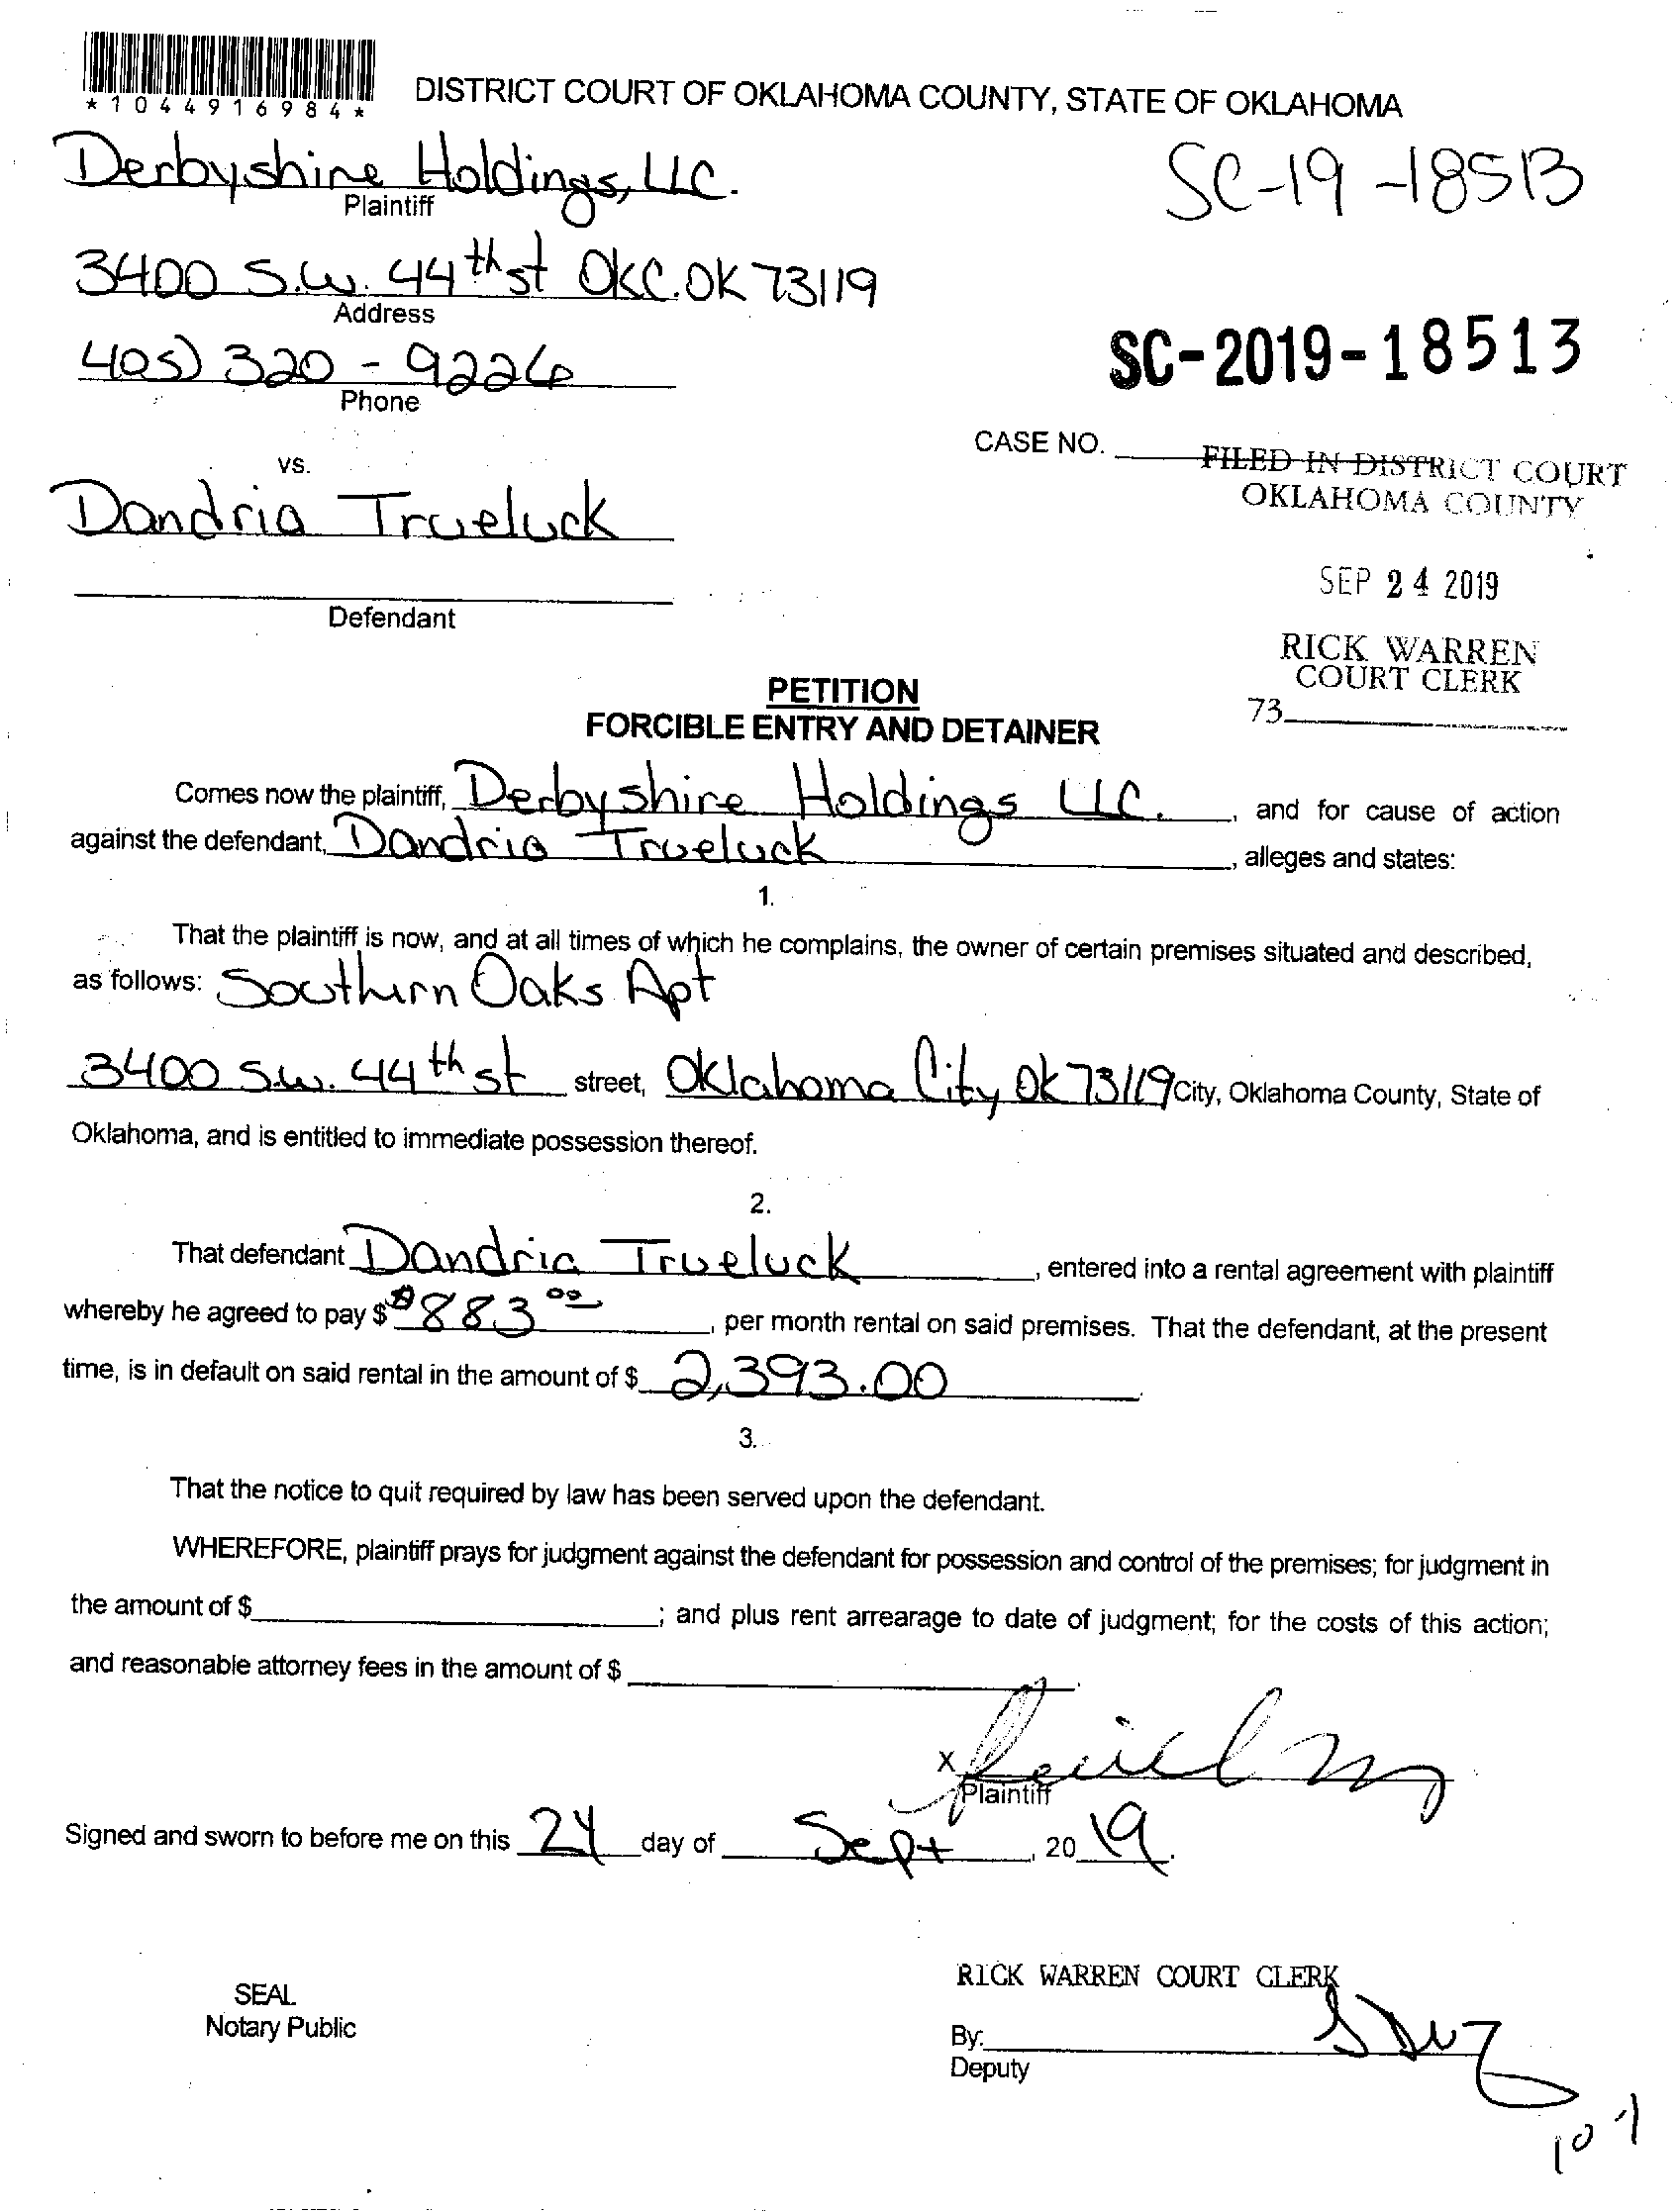 *1044916984*
DISTRICT COURT OF OKLAHOMA COUNTY, STATE OF OKLAHOMA
Derbyshire Holdings, LLC.
Plaintiff
SC-19-18513
3400 S.W. 44th st OKC. OK 73119
Address
405) 320 - 9226
Phone
SC-2019-18513
CASE NO.
FILED IN DISTRICT COURT
OKLAHOMA COUNTY
vs.
Dandria Trueluck
Defendant
SEP 24 2019
RICK WARREN
COURT CLERK
73
PETITION
FORCIBLE ENTRY AND DETAINER
Comes now the plaintiff, Derbyshire Holdings LLC. , and for cause of action
against the defendant, Dandria Trueluck , alleges and states:
1.
That the plaintiff is now, and at all times of which he complains, the owner of certain premises situated and described,
as follows: Southern Oaks Apt
3400 S.W. 44th st street, Oklahoma City, OK 73119 City, Oklahoma County, State of
Oklahoma, and is entitled to immediate possession thereof.
2.
That defendant Dandria Trueluck , entered into a rental agreement with plaintiff
whereby he agreed to pay $ $883.00 , per month rental on said premises. That the defendant, at the present
time, is in default on said rental in the amount of $ 2,393.00
3.
That the notice to quit required by law has been served upon the defendant.
WHEREFORE, plaintiff prays for judgment against the defendant for possession and control of the premises; for judgment in
the amount of $ ; and plus rent arrearage to date of judgment; for the costs of this action;
and reasonable attorney fees in the amount of $ .
X
Plaintiff
Signed and sworn to before me on this 24 day of Sept , 20 19.
SEAL
Notary Public
RICK WARREN COURT CLERK
By:
Deputy